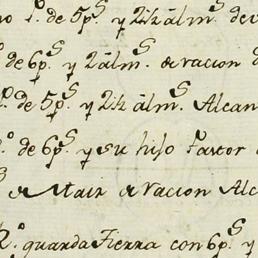 no 1.º de 5p.s y 2½ alm.s de
de 6p.s y 2 alm.s de racion
º. de 5p.s y 2½ alm.s Alcan
º. de 6p.s y su hijo Pastor
de Maiz de racion Alc
2.º guarda Tierra con 6p.s y